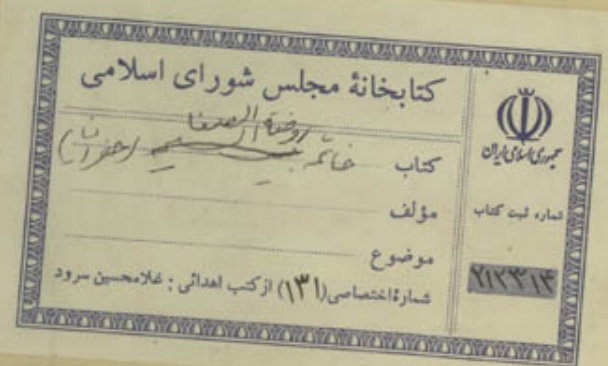 کتابخانهٔ مجلس شورای اسلامی
کتاب خاتمه روضة الصفا
مؤلف
موضوع
شمارهٔ اختصاصی (۱۳۱) از کتب اهدائی : غلامحسین سرود
جمهوری اسلامی ایران
شماره ثبت کتاب
۲۱۲۳۱۳